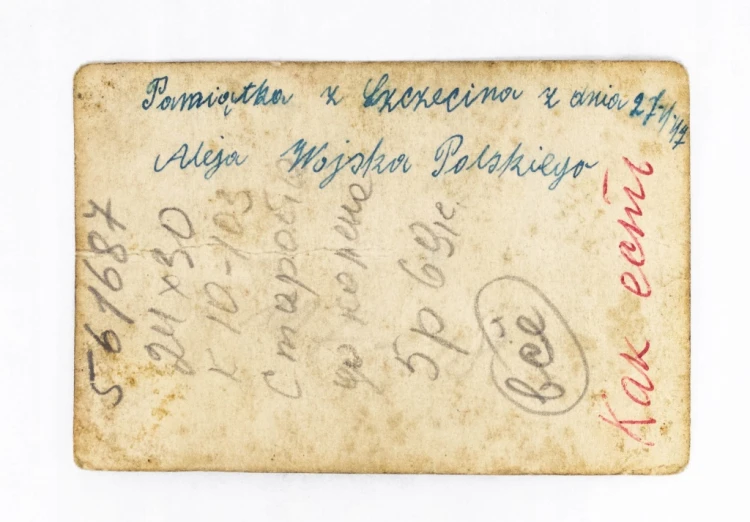 Pamiątka z Szczecina z dnia 27-V-47
Aleja Wojska Polskiego
561687
24 x 30
К 10-103
до колена
5р 69к.
все
Как есть